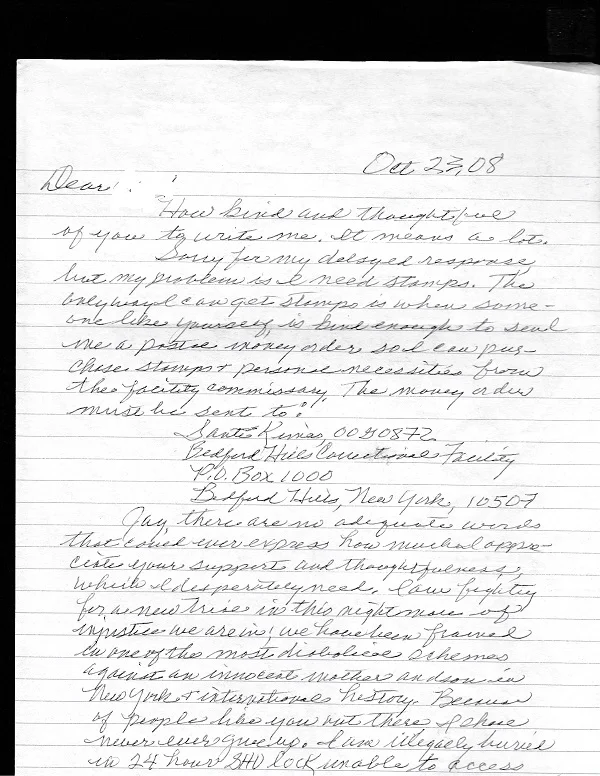 Oct 23, 08
Dear
How kind and thoughtful
of you to write me. It means a lot.
Sorry for my delayed response,
but my problem is I need stamps. The
only way I can get stamps is when some-
one like yourself, is kind enough to send
me a postal money order so I can pur-
chase stamps + personal necessities from
the facility commissary. The money order
must be sent to:
Sante Kimes, 00G0872
Bedford Hills Correctional Facility
P.O. Box 1000
Bedford Hills, New York, 10507
Jay, there are no adequate words
that could ever express how much I appre-
ciate your support and thoughtfulness,
which I desperately need. I am fighting
for a new trial in this nightmare of
injustice we are in! We have been framed
in one of the most diabolical schemes
against an innocent mother and son in
New York + international history. Because
of people like you out there I shall
never ever give up. I am illegally buried
in 24 hour SHU lock unable to access